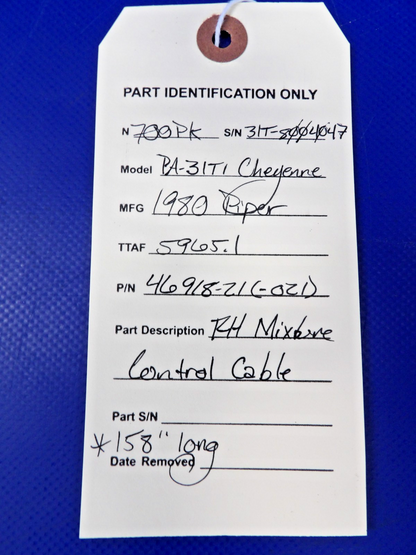 PART IDENTIFICATION ONLY
N 700PK S/N 31T-8004047
Model PA-31T1 Cheyenne
MFG 1980 Piper
TTAF 5965.1
P/N 46918-21(-021)
Part Description RH Mixture
Control Cable
Part S/N
*158" long
Date Removed